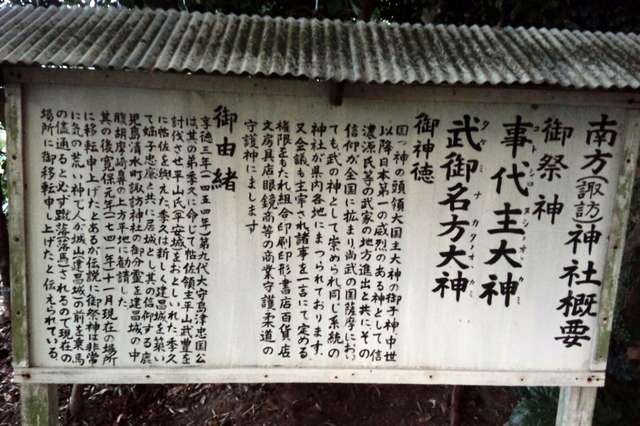 南方(諏訪)神社概要
御祭神
事代主大神
コトシロヌシオオカミ
武御名方大神
タケミナカタオオカミ
御神徳
国つ神の頭領大国主大神の御子神中世
以降日本第一の威烈のある神として信
濃源氏等の武家の地方進出と共にその
信仰が全国に拡まり尚武の国薩摩におい
ても武の神として崇められ同じ系統の
神社が県内各地にまつられております、
又会議も主宰され諸事を一言にて定める
権限をもたれ組合印刷印形書店百貨店
文房具店眼鏡商等の商業守護柔道の
守護神にまします
御由緒
享徳三年(一四五四年)第九代大守島津忠国公
は其の弟季久に命じて帖佐領主平山武豊を
討伐させ平山氏(平安城)をおとしいれた季久
に帖佐を与えた季久は新しく建昌城を築い
て嫡子忠廉と共に居城として其の信仰する鹿
児島清水町諏訪神社の御分霊を建昌城の中
腹胡摩崎鼻の上方平地に勧請した
其の後寛保元年(一七四一年)十一月現在の場所
に移転申上げたとあるが伝説に御祭神は非常
に気の荒い神で人が城山(建昌城)の前を乗馬
の儘通ると必ず蹴落(落馬)されるので現在の
場所に御移転申し上げたと伝えられている、